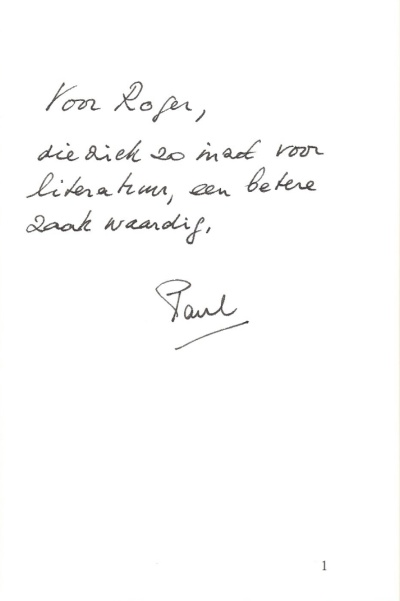 Voor Roger,
die zich zo inzet voor
literatuur, een betere
zaak waardig.
Paul
1